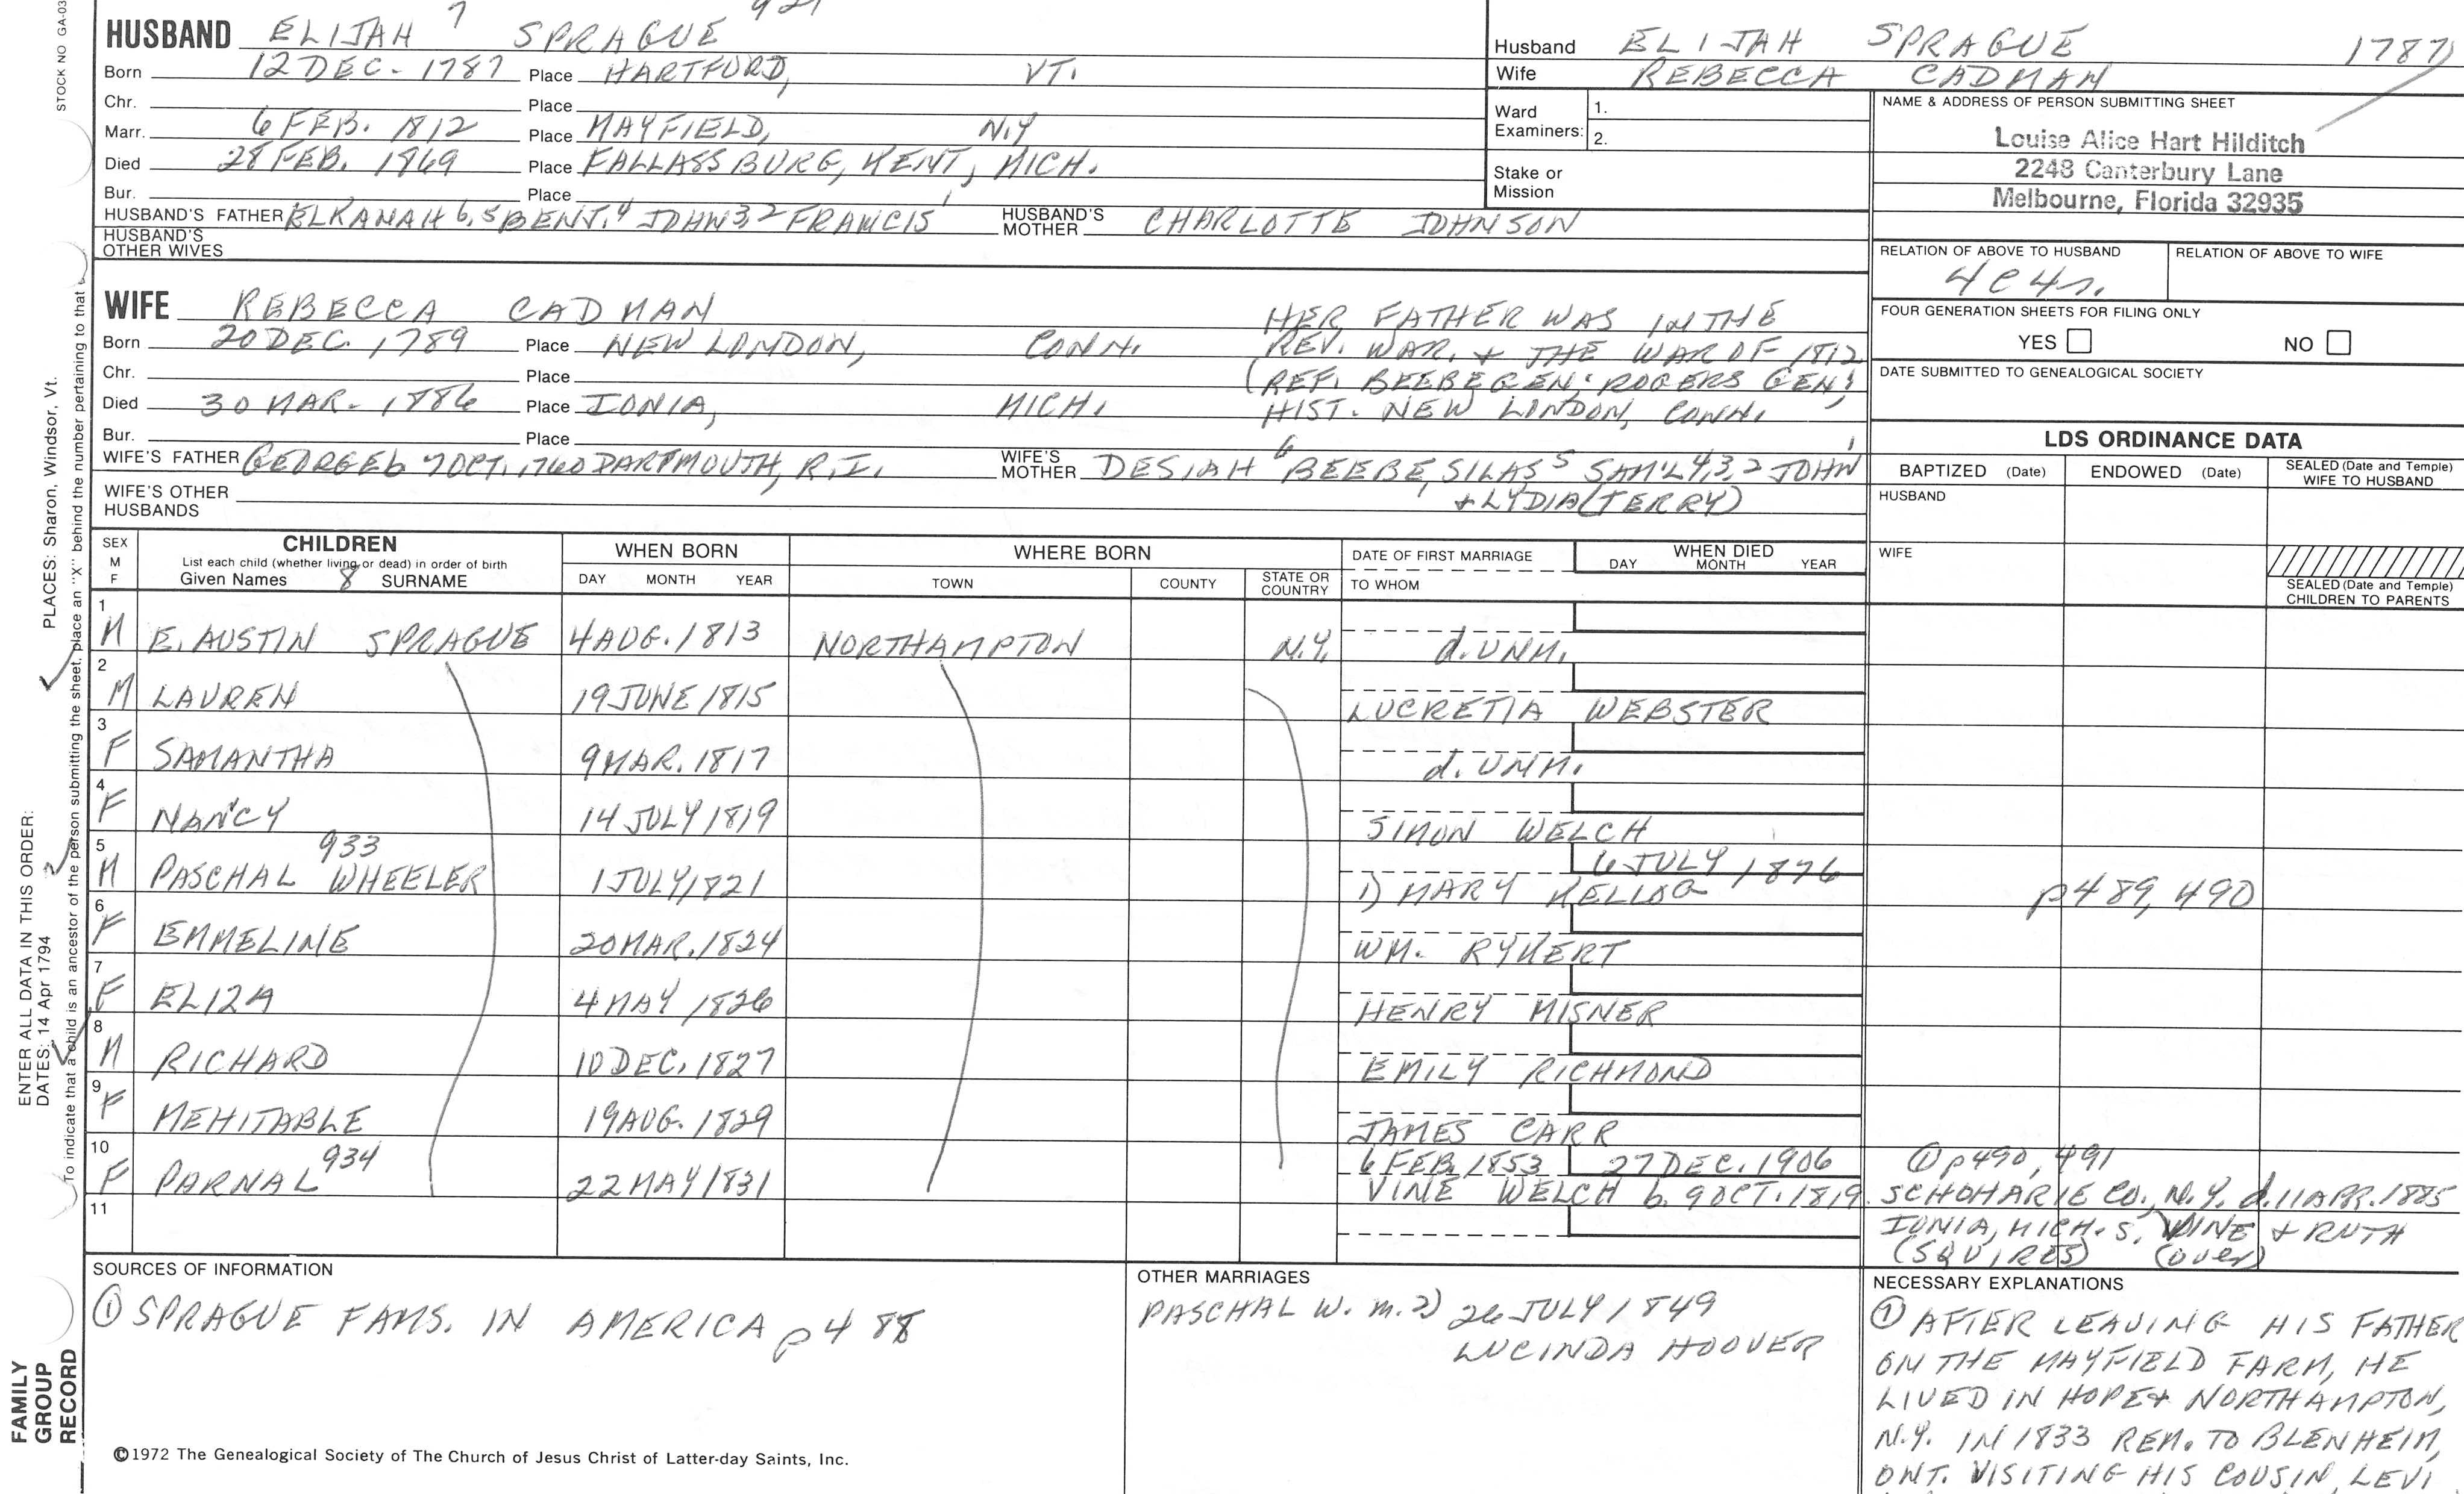 STOCK NO GA-03
HUSBAND ELIJAH 7 SPRAGUE
Born 12 DEC. 1787 Place HARTFORD, VT.
Chr. Place
Marr. 6 FEB. 1812 Place MAYFIELD, N.Y
Died 28 FEB. 1869 Place FALLASSBURG, KENT, MICH.
Bur. Place
HUSBAND'S FATHER ELKANAH 6, 5 BENJ. 4 JOHN 3, 2 FRANCIS 1 HUSBAND'S MOTHER CHARLOTTE JOHNSON
HUSBAND'S OTHER WIVES
Husband ELIJAH SPRAGUE 1787)
Wife REBECCA CADMAN
Ward Examiners: 1.
2.
Stake or Mission
NAME & ADDRESS OF PERSON SUBMITTING SHEET
Louise Alice Hart Hilditch
2248 Canterbury Lane
Melbourne, Florida 32935
RELATION OF ABOVE TO HUSBAND RELATION OF ABOVE TO WIFE
4C4r.
FOUR GENERATION SHEETS FOR FILING ONLY
YES NO
DATE SUBMITTED TO GENEALOGICAL SOCIETY
WIFE REBECCA CADMAN
Born 20 DEC. 1789 Place NEW LONDON, CONN.
Chr. Place
Died 30 MAR. 1886 Place IONIA, MICH.
Bur. Place
HER FATHER WAS IN THE
REV. WAR. + THE WAR OF 1812
(REF. BEEBE GEN; ROGERS GEN;
HIST. NEW LONDON, CONN.
WIFE'S FATHER GEORGE b 7 OCT. 1760 DARTMOUTH, R.I. WIFE'S MOTHER DESIAH 6 BEEBE, SILAS 5 SAM'L 4,3,2 JOHN 1
+ LYDIA (TERRY)
WIFE'S OTHER HUSBANDS
LDS ORDINANCE DATA
BAPTIZED (Date) ENDOWED (Date) SEALED (Date and Temple) WIFE TO HUSBAND
HUSBAND
WIFE
SEALED (Date and Temple) CHILDREN TO PARENTS
SEX M F CHILDREN List each child (whether living or dead) in order of birth Given Names 8 SURNAME WHEN BORN DAY MONTH YEAR WHERE BORN TOWN COUNTY STATE OR COUNTRY DATE OF FIRST MARRIAGE TO WHOM WHEN DIED DAY MONTH YEAR
1 M E. AUSTIN SPRAGUE 4 AUG. 1813 NORTHAMPTON N.Y. d. UNM.
2 M LAUREN 19 JUNE 1815 LUCRETIA WEBSTER
3 F SAMANTHA 9 MAR. 1817 d. UNM.
4 F NANCY 14 JULY 1819 SIMON WELCH
5 M PASCHAL WHEELER 933 1 JULY 1821 1) MARY KELLOG 6 JULY 1876 p489, 490
6 F EMMELINE 20 MAR. 1824 WM. RYKERT
7 F ELIZA 4 MAY 1826 HENRY MISNER
8 M RICHARD 10 DEC. 1827 EMILY RICHMOND
9 F MEHITABLE 19 AUG. 1829 JAMES CARR
10 F PARNAL 934 22 MAY 1831 6 FEB. 1853 27 DEC. 1906 ① p490, 491
VINE WELCH b. 9 OCT. 1819 SCHOHARIE CO., N.Y. d. 11 APR. 1885
11 IONIA, MICH. S. VINE + RUTH
(SQUIRES) (over)
SOURCES OF INFORMATION
① SPRAGUE FAMS. IN AMERICA p488
OTHER MARRIAGES
PASCHAL W. m. 2) 26 JULY 1849
LUCINDA HOOVER
NECESSARY EXPLANATIONS
① AFTER LEAVING HIS FATHER
ON THE MAYFIELD FARM, HE
LIVED IN HOPE + NORTHAMPTON,
N.Y. IN 1833 REM. TO BLENHEIM,
ONT. VISITING HIS COUSIN, LEVI
©1972 The Genealogical Society of The Church of Jesus Christ of Latter-day Saints, Inc.
FAMILY GROUP RECORD
ENTER ALL DATA IN THIS ORDER:
DATES: 14 Apr 1794
PLACES: Sharon, Windsor, Vt.
To indicate that a child is an ancestor of the person submitting the sheet, place an "X" behind the number pertaining to that